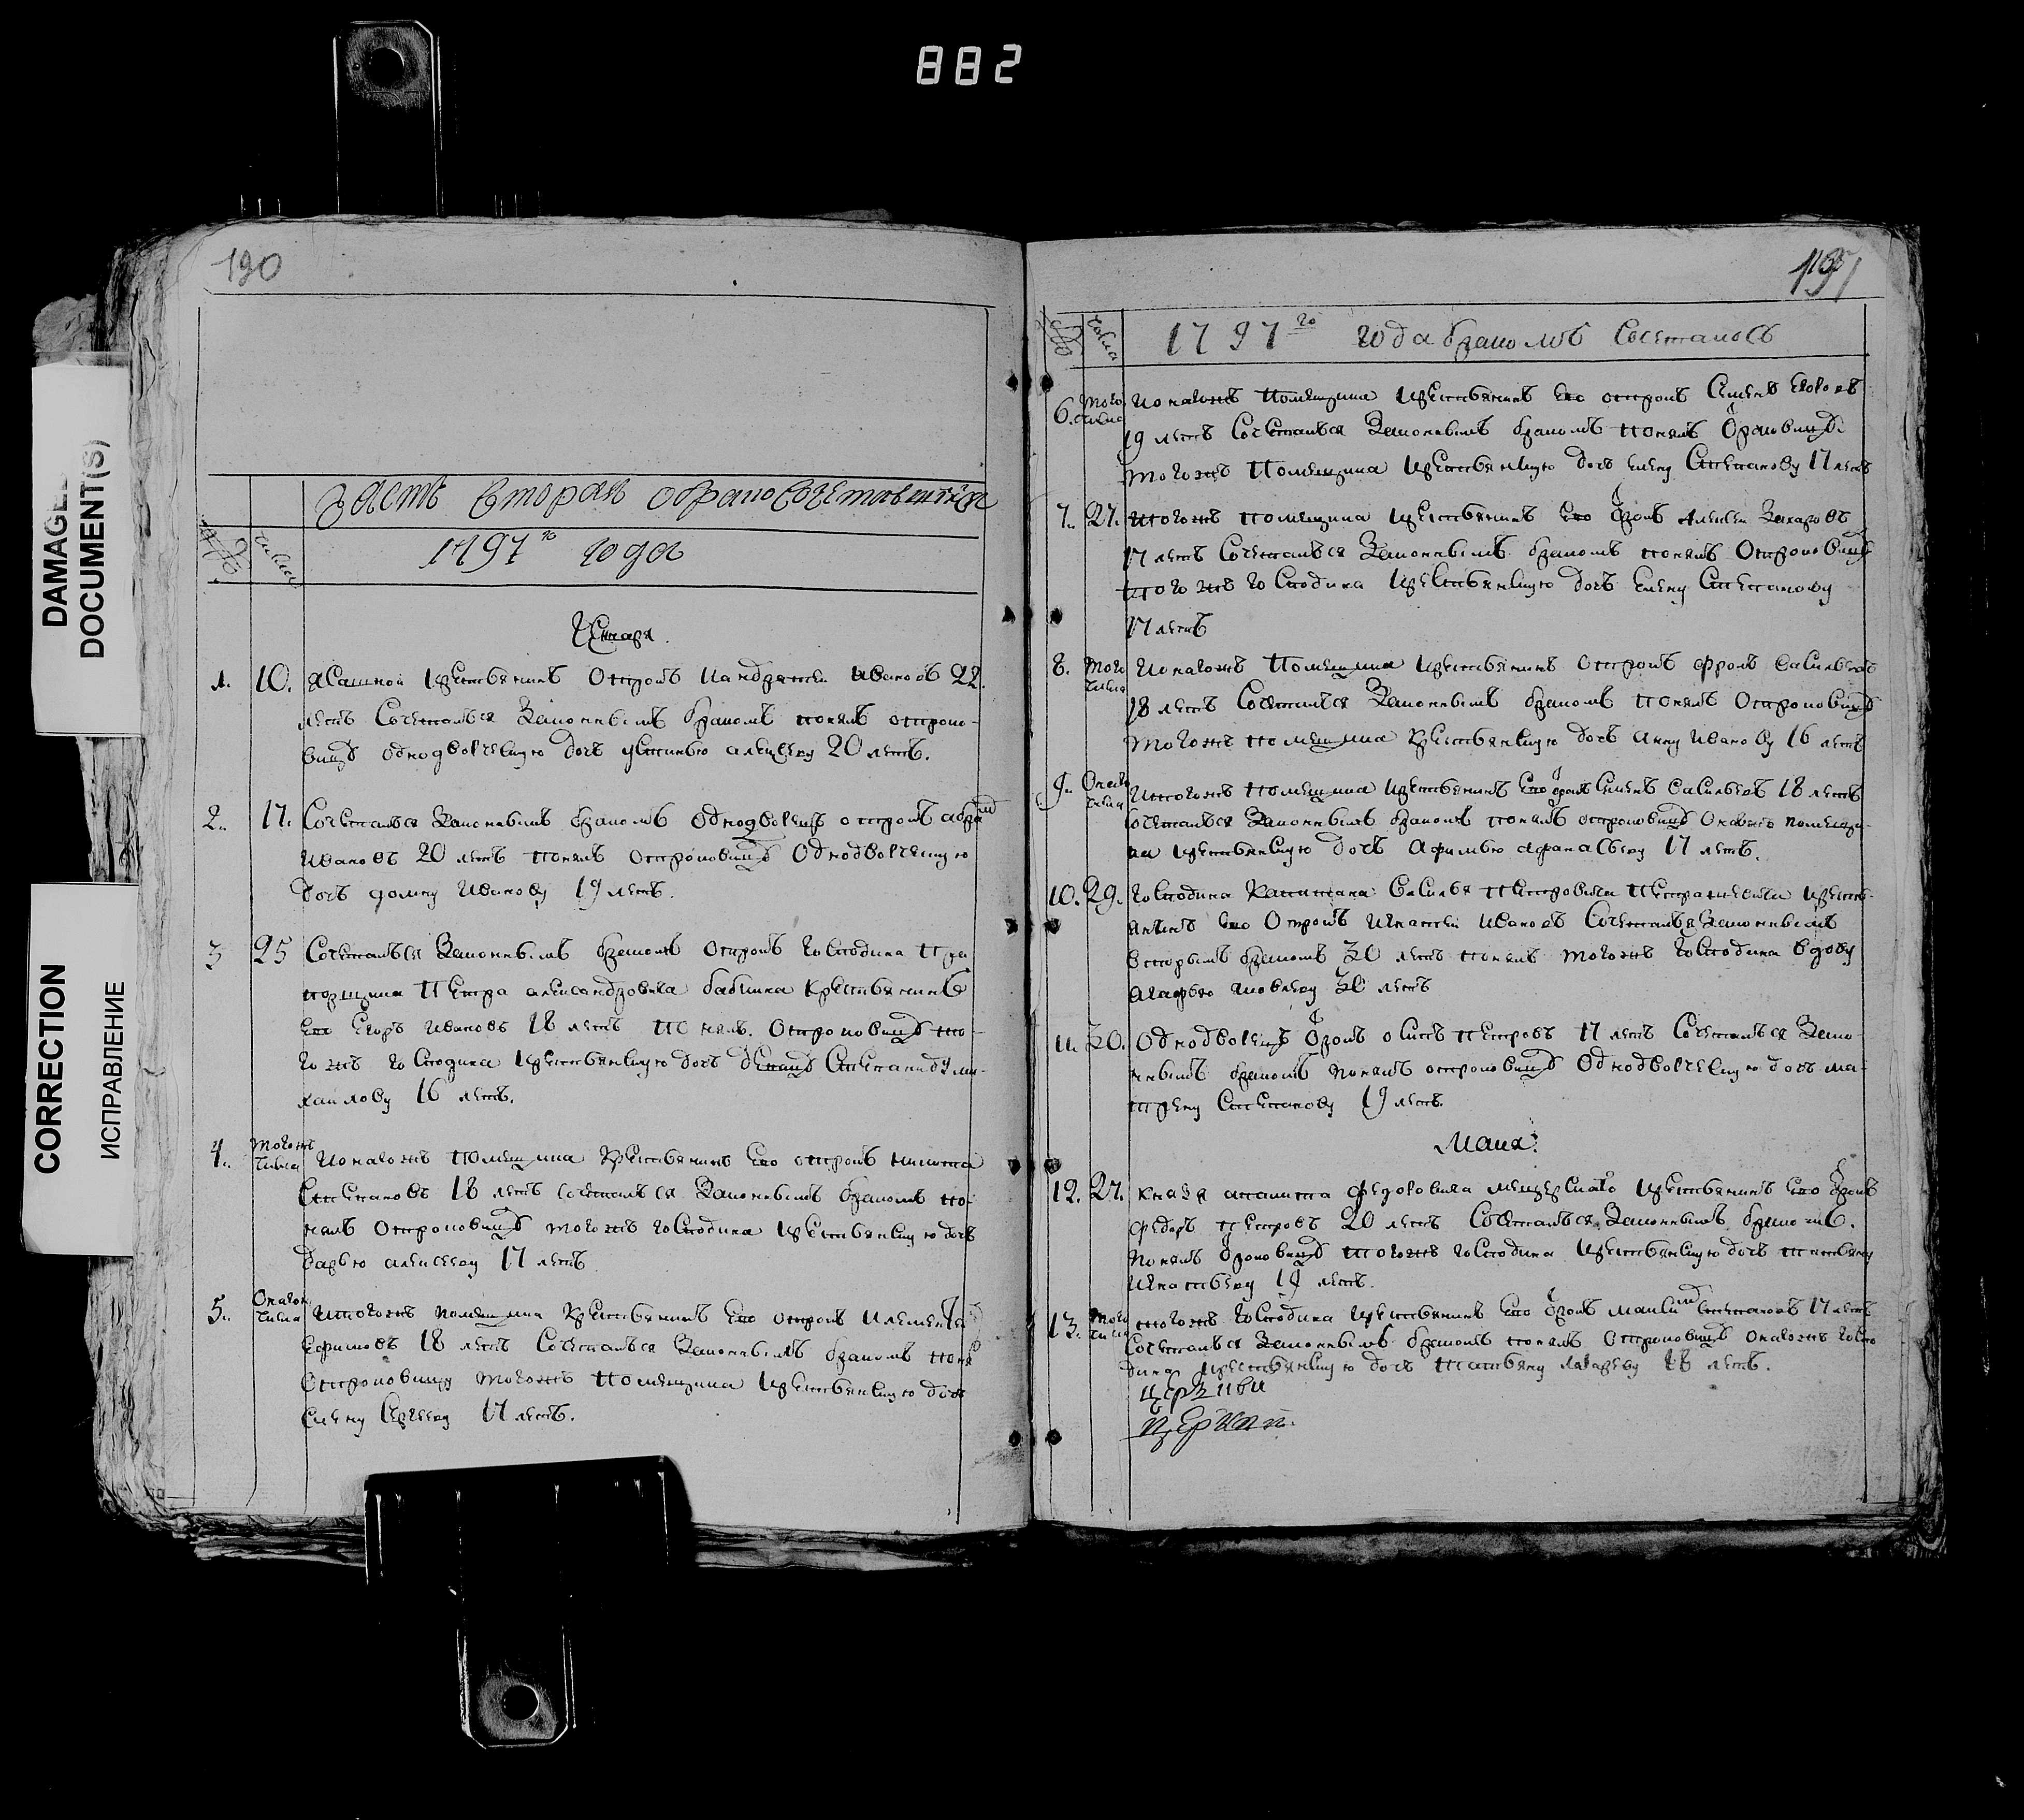 882
DAMAGED
DOCUMENT(S)
CORRECTION
ИСПРАВЛЕНИЕ
190
Часть вторая о бракосочетавшихся
числа
1797го года
Генваря
1. 10. ясашной крестьянинъ отрокъ Кандратей Ивановъ 22
летъ сочетался законнымъ бракомъ понялъ отроко-
вицу однодворческую дочь Устинью Алѣксеву 20 летъ.
2. 17. Сочетался законнымъ бракомъ однодворецъ отрокъ
Ивановъ 20 летъ понялъ отроковицу однодворческую
дочь Домну Иванову 19 летъ.
3 25 Сочетался законнымъ бракомъ отрокъ господина пра
порщика Петра Александровича Бабкина крестьянинъ
ево Егоръ Ивановъ 18 летъ понялъ отроковицу то-
гожъ господина крестьянскую дочь девицу Степаниду Ми-
хаилову 16 летъ.
4. Тогожъ числа онагожъ помещика крестьянинъ ево отрокъ Никита
Степановъ 18 летъ сочетался законнымъ бракомъ по-
нялъ отроковицу тогожъ господина крестьянскую дочь
Дарью Алексеву 17 летъ
5. Онагож числа тогожъ помещика крестьянинъ ево отрокъ Клементей
Ефимовъ 18 летъ сочетался законнымъ бракомъ поня
отроковицу тогожъ помещика крестьянскую дочь
Елену Сергеву 17 летъ.
191
числа
1797го года бракомъ сочетались
6. того числа онагожъ помещика крестьянинъ ево отрокъ Семенъ
19 летъ сочетался законнымъ бракомъ понялъ отроковицу
тогожъ помещика крестьянскую дочь Елену Степанову 17 летъ
7. 27. тогожъ помещика крестьянинъ ево отрокъ Алексей Захаровъ
17 летъ сочетался законнымъ бракомъ понялъ отроковицу
тогожъ господина крестьянскую дочь Елену Степанову
17 летъ
8. того числа онагожъ помещика крестьянинъ отрокъ Фролъ Васильевъ
18 летъ сочетался законнымъ бракомъ понялъ отроковицу
тогожъ помещика крестьянскую дочь Анну Иванову 16 летъ
9. числа тогожъ помещика крестьянинъ ево отрокъ Семенъ Васильевъ 18 летъ
сочетался законнымъ бракомъ понялъ отроковицу онагожъ помещи-
ка крестьянскую дочь Афимью Афанасьеву 17 летъ.
10. 29. господина капитана Василья Петровича крестья-
янинъ ево отрокъ Игнатей Ивановъ сочетался законнымъ
вторымъ бракомъ 30 летъ понялъ тогожъ господина вдову
Агафью Яковлеву 30 летъ
11. 30. однодворецъ отрокъ Осипъ Петровъ 17 летъ сочетался зако-
ннымъ бракомъ понялъ отроковицу однодворческую дочь Ма-
трену Степанову 19 летъ.
Маия.
12. 27. князя Федоровича Мещерскаго крестьянинъ ево отрокъ
Федоръ Петровъ 20 летъ сочетался законнымъ бракомъ.
понялъ отроковицу тогожъ господина крестьянскую дочь Татьяну
Игнатьеву 19 летъ.
13. того числа тогожъ господина крестьянинъ ево отрокъ Максимъ Степановъ 17 летъ
сочетался законнымъ бракомъ понялъ отроковицу онагожъ госпо
дина крестьянскую дочь Татьяну Лазареву 18 летъ.
церкви
церкви